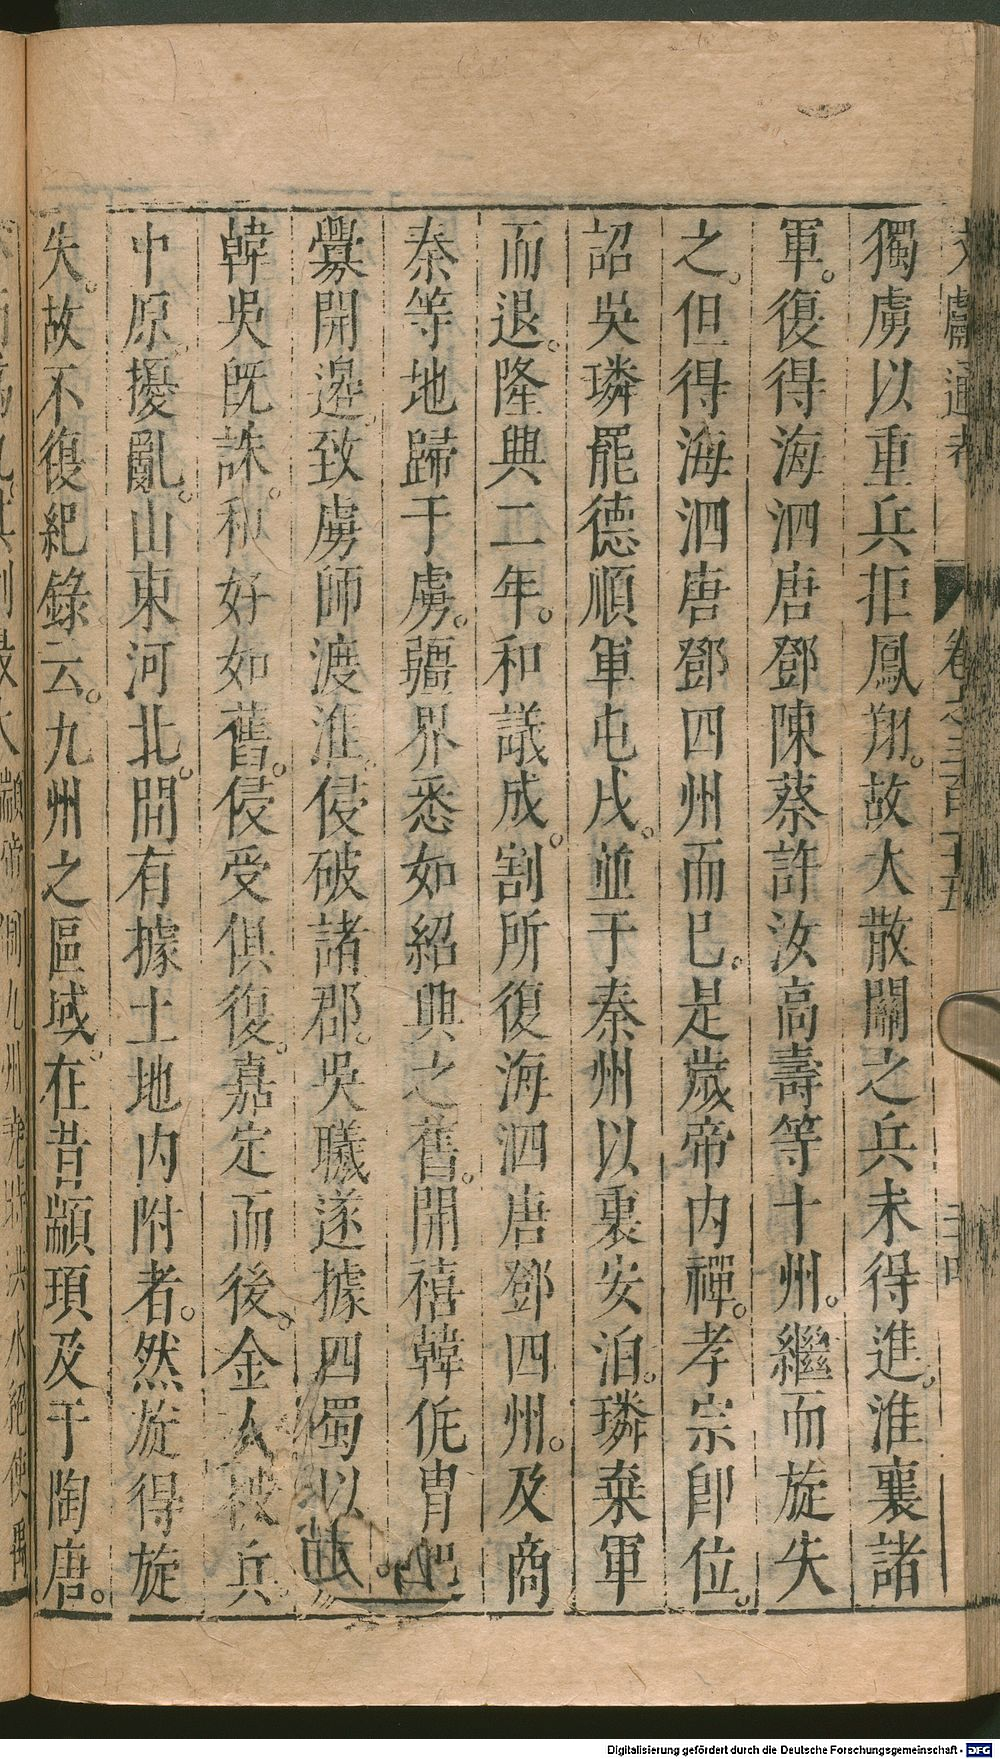 獨虜以重兵拒鳳翔。故大散關之兵未得進。淮襄諸
軍。復得海泗唐鄧陳蔡許汝高壽等十州。繼而旋失
之。但得海泗唐鄧四州而已。是歲帝内禪。孝宗卽位。
詔吳璘罷德順軍屯戍。並于秦州以裏安泊。璘棄軍
而退。隆興二年。和議成。割所復海泗唐鄧四州。及商
秦等地歸于虜。疆界悉如紹興之舊。開禧韓侂胄
釁開邊。致虜師渡淮。侵破諸郡。吳曦遂據四蜀以
韓吳旣誅。和好如舊。侵受俱復。嘉定而後。金人被兵。
中原。擾亂。山東河北。間有據土地内附者。然旋得旋
失。故不復紀錄云。九州之區域。在昔顓頊及于陶唐。
文獻通考
Digitalisierung gefördert durch die Deutsche Forschungsgemeinschaft - DFG